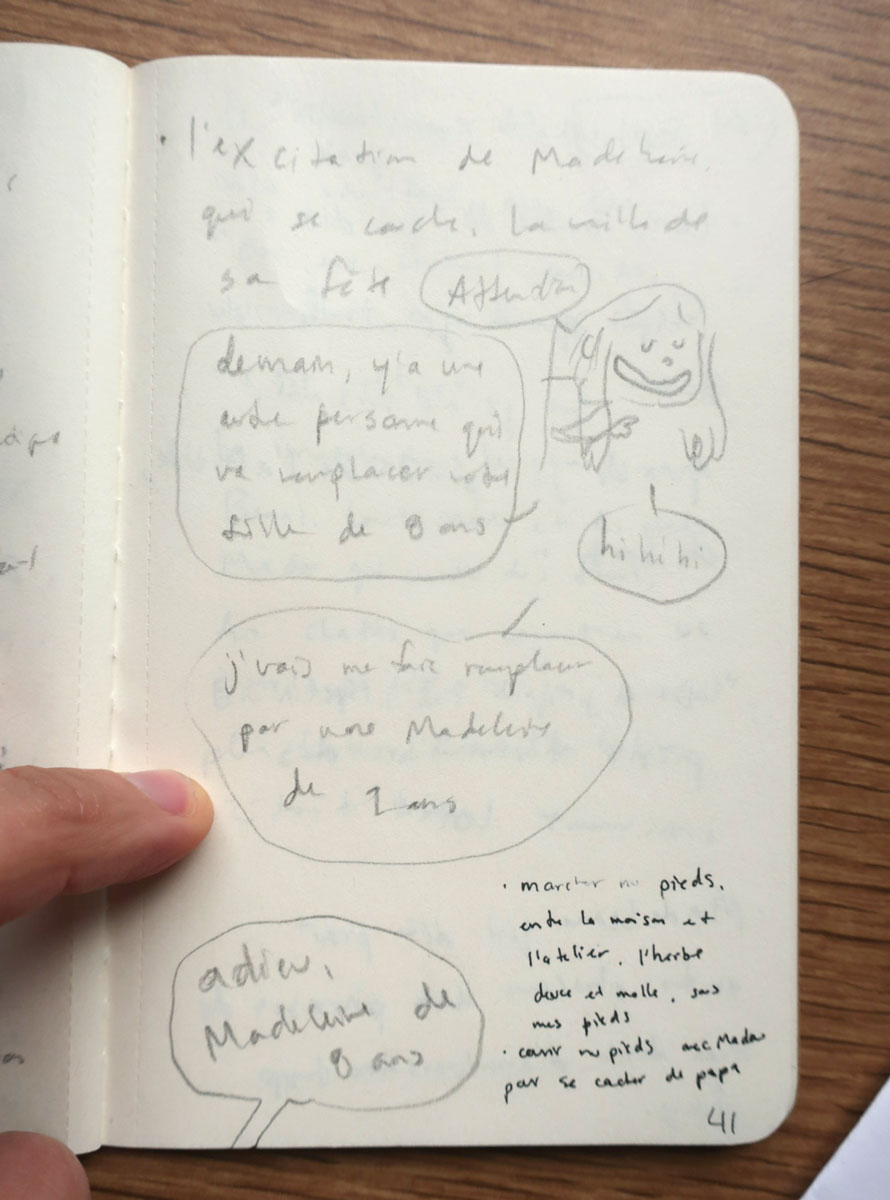 • l'excitation de Madeleine
qui se cache. La veille de
sa fête
Attention
demain, y'a une
autre personne qui
va remplacer votre
fille de 8 ans
hi hi hi
j'vais me faire remplacer
par une Madeleine
de 9 ans
adieu,
Madeleine de
8 ans
• marcher nu pieds,
entre la maison et
l'atelier. l'herbe
douce et molle, sous
mes pieds
• courir nu pieds avec Mado
pour se cacher de papa
41